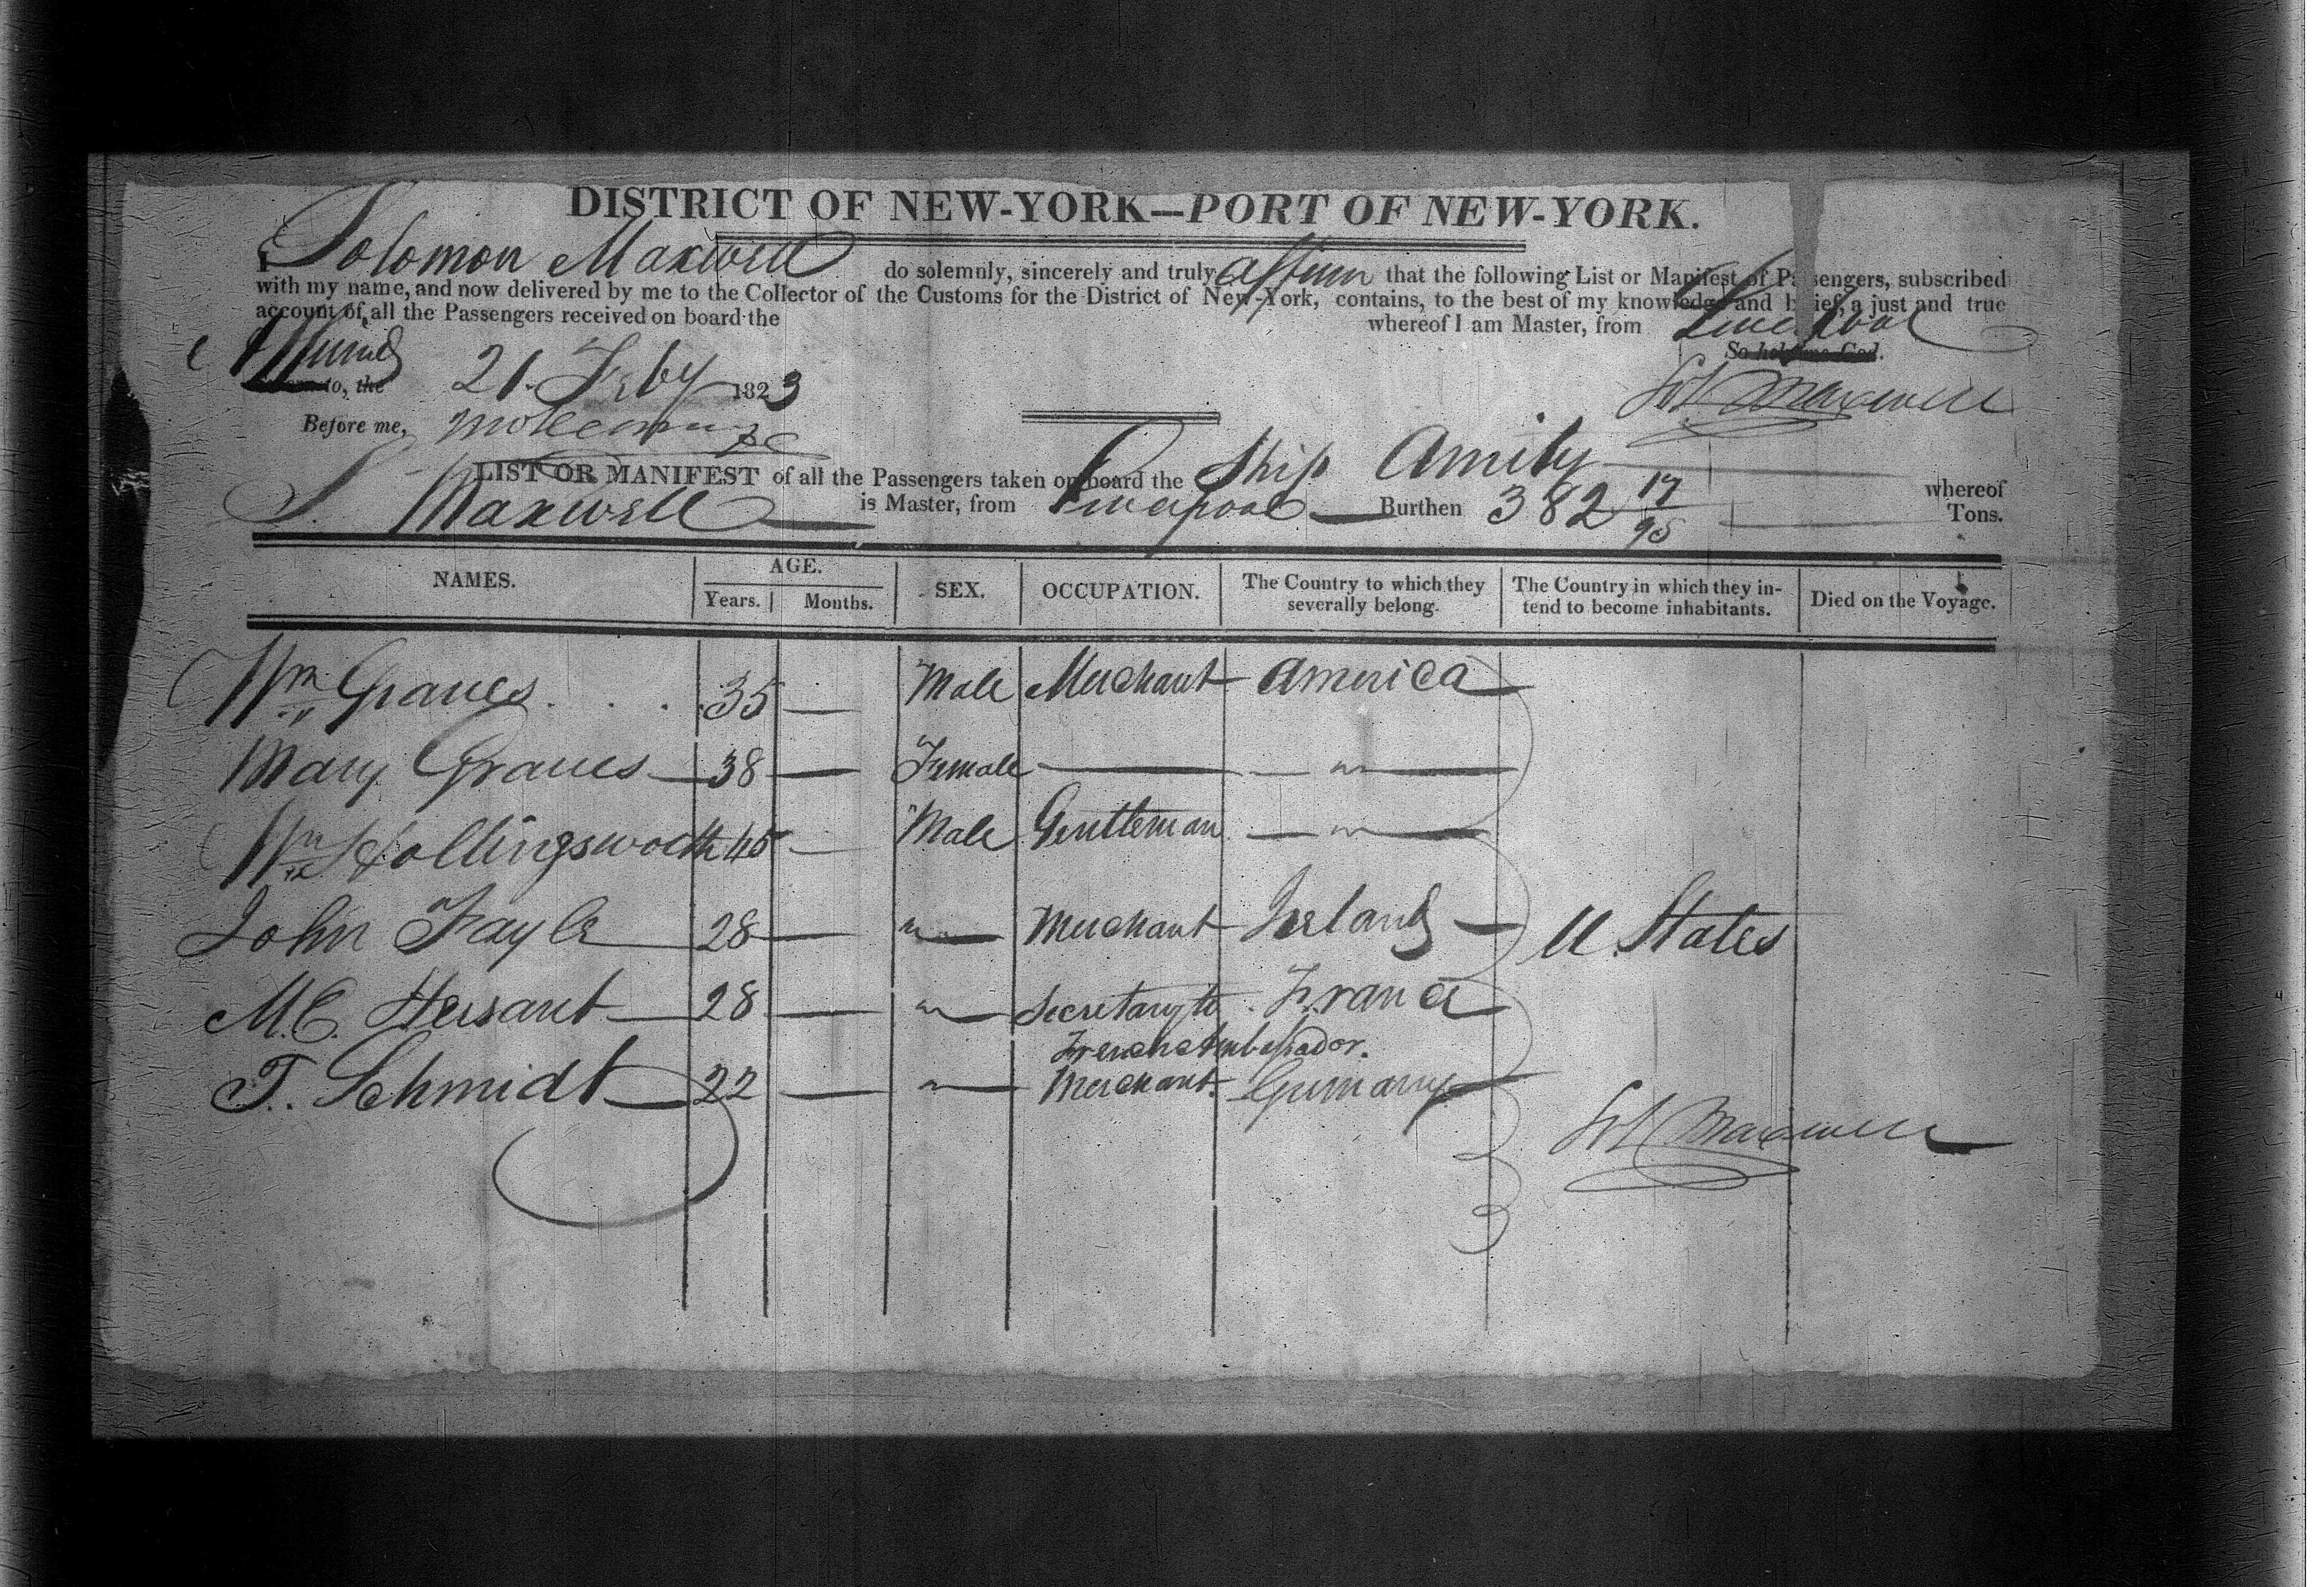 DISTRICT OF NEW-YORK—PORT OF NEW-YORK.
I Solomon Maxwell do solemnly, sincerely and truly affirm that the following List or Manifest of Passengers, subscribed
with my name, and now delivered by me to the Collector of the Customs for the District of New-York, contains, to the best of my knowledge and belief, a just and true
account of all the Passengers received on board the whereof I am Master, from Liverpool
So help me God.
Affirmed to, the 21. Feby 1823
Sol Maxwell
Before me,
LIST OR MANIFEST of all the Passengers taken on board the Ship Amity whereof
S. Maxwell is Master, from Liverpool Burthen 382 17/95 Tons.
NAMES. AGE. Years. Months. SEX. OCCUPATION. The Country to which they severally belong. The Country in which they intend to become inhabitants. Died on the Voyage.
Wm Graves 35 — Male Merchant America
Mary Graves 38 — Female — — " —
Wm Hollingsworth 45 — Male Gentleman — " —
John Fayle 28 — " Merchant Ireland U. States
M.C. Hersant 28 — " Secretary to France
French Ambassador.
T. Schmidt 22 — " Merchant. Germany
Sol Maxwell